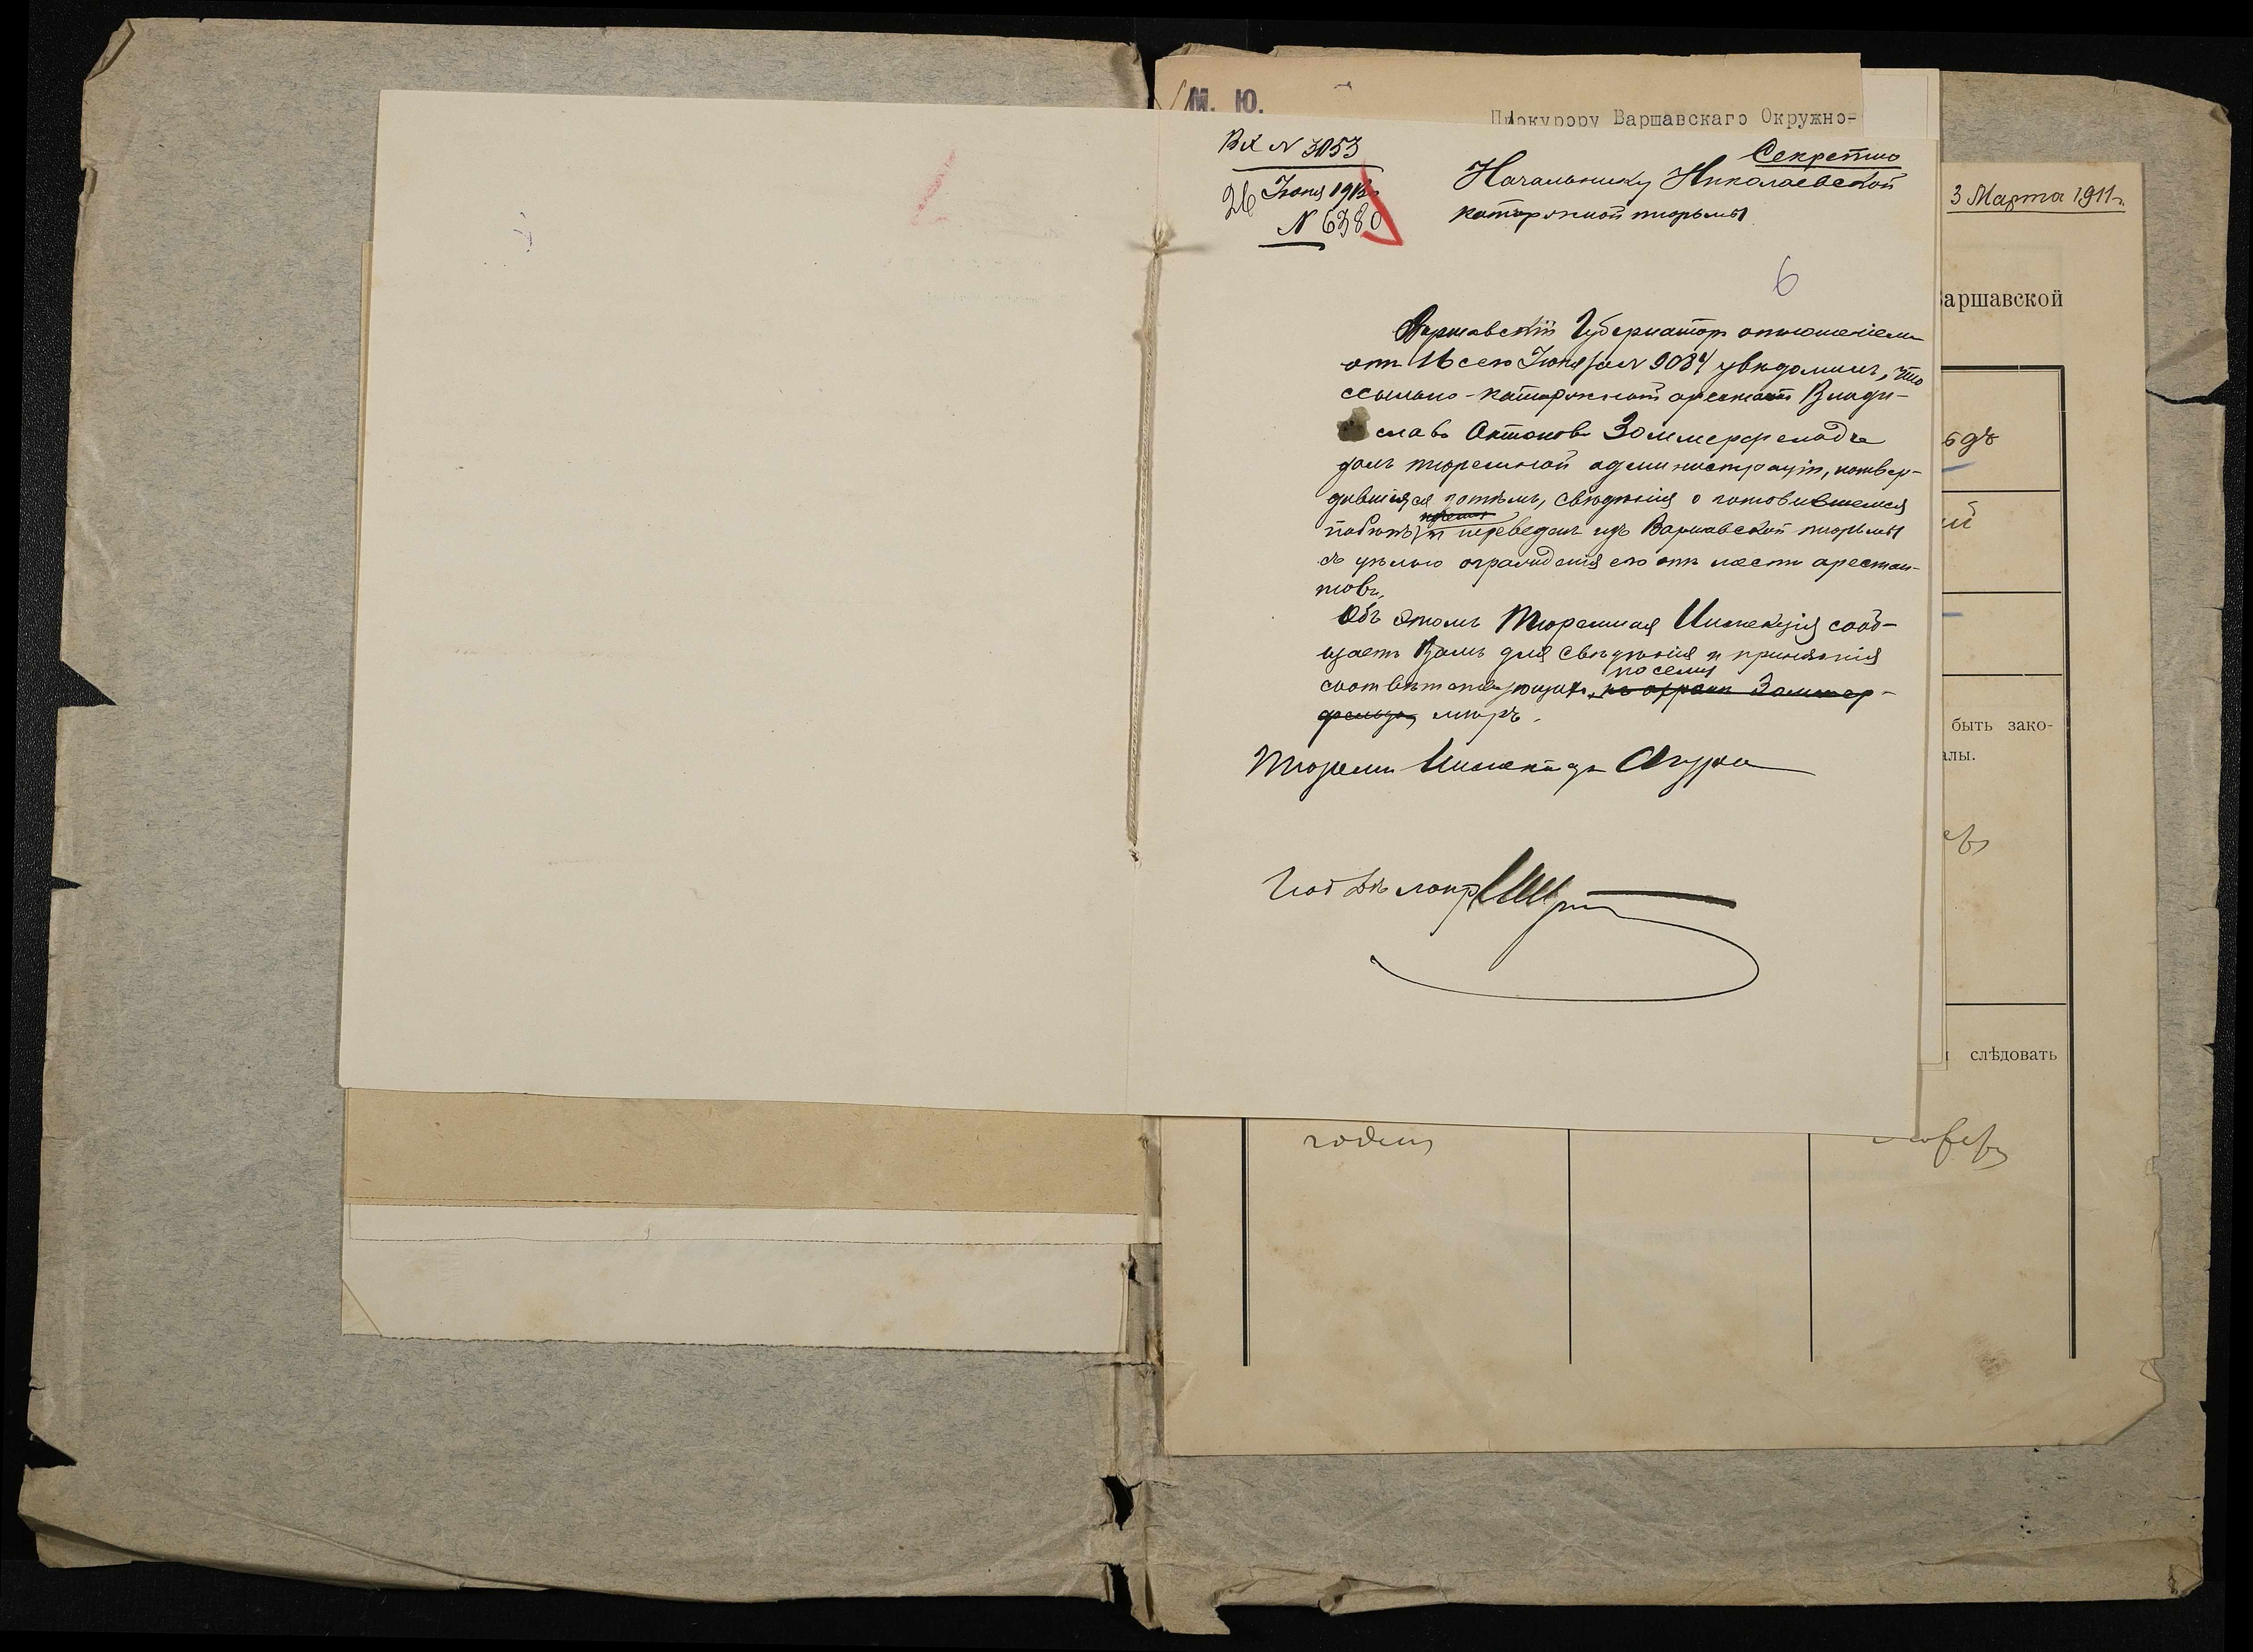 М. Ю.
Прокурору Варшавскаго Окружно-
Вх № 3053
26 Іюня 1912
№ 6380
Секретно
Начальнику Николаевской
каторжной тюрьмы
3 Марта 1911 г.
6
Варшавской
Варшавскій Губернаторъ отношеніемъ
отъ 16 сего Іюня за № 9084 увѣдомилъ, что
ссыльно-каторжный арестантъ Влади-
славъ Антоновъ Зоммерфельдъ
далъ тюремной администраціи, потвер-
дившіяся потомъ, свѣдѣнія о готовившемся
побѣгѣ и переведенъ изъ Варшавской тюрьмы
съ цѣлью огражденія его отъ мести арестан-
товъ.
Объ этомъ Тюремная Инспекція сооб-
щаетъ Вамъ для свѣдѣнія и принятія
соотвѣтствующихъ по сему
къ охранѣ Зоммер-
фельда, мѣръ.
Тюремн Инспекторъ
быть зако-
алы.
слѣдовать
годенъ